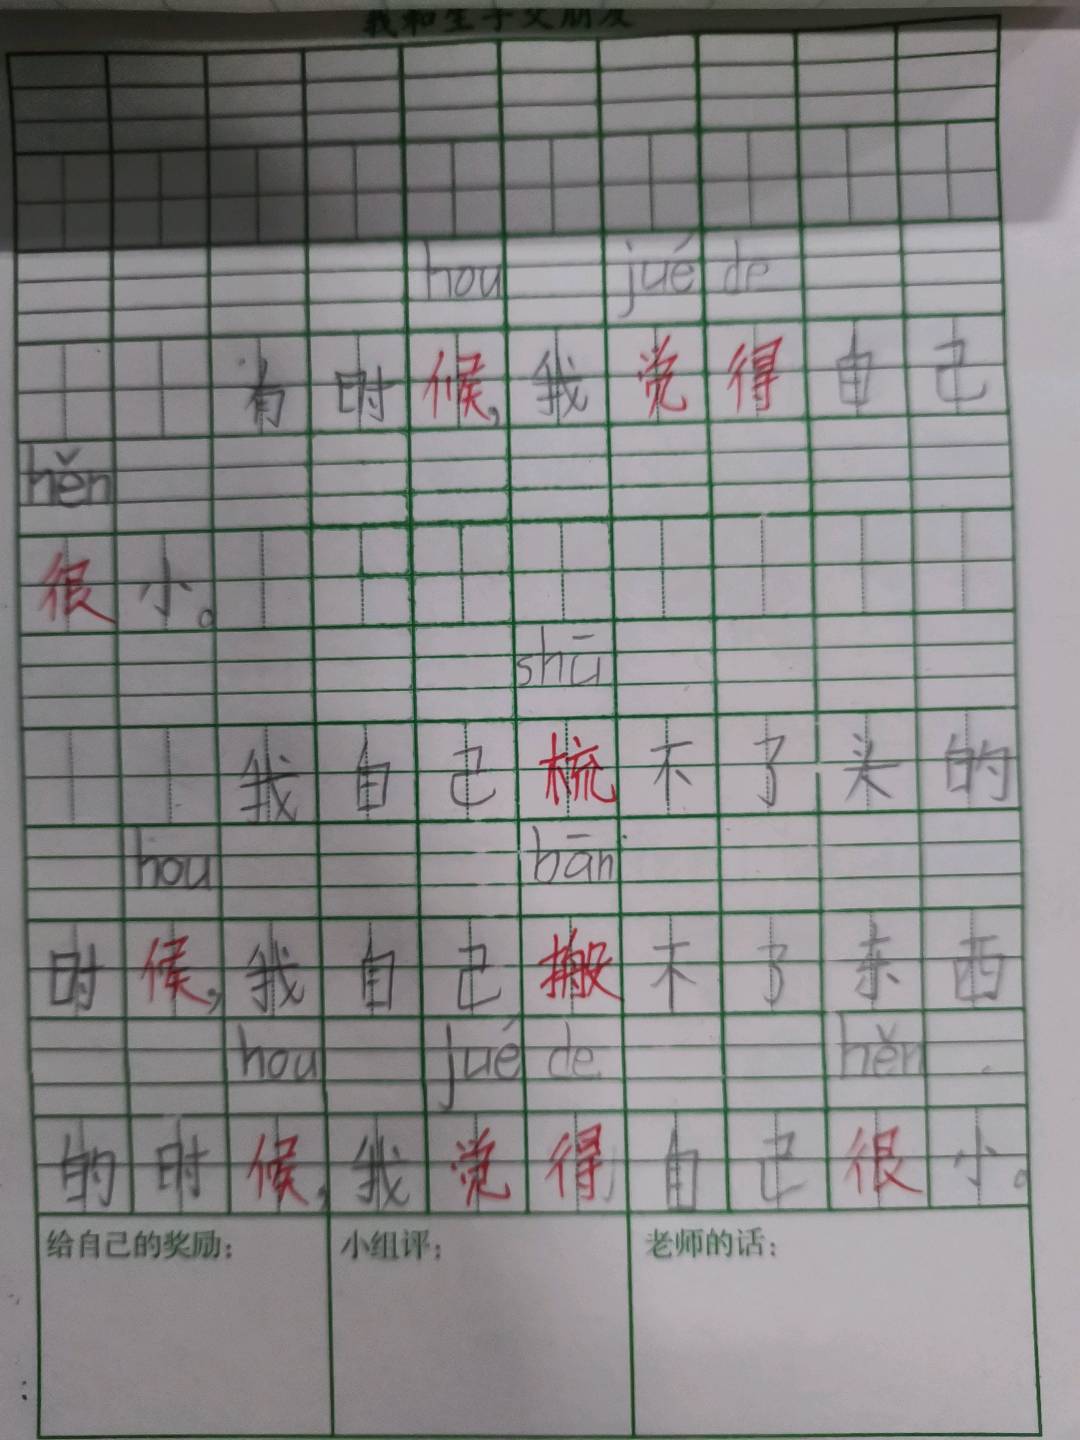 我和生字交朋友
hou jué de
有时候,我觉得自己
hěn
很小。
shū
我自己梳不了头的
hou bān
时候,我自己搬不了东西
hou jué de hěn
的时候,我觉得自己很小。
给自己的奖励: 小组评: 老师的话: